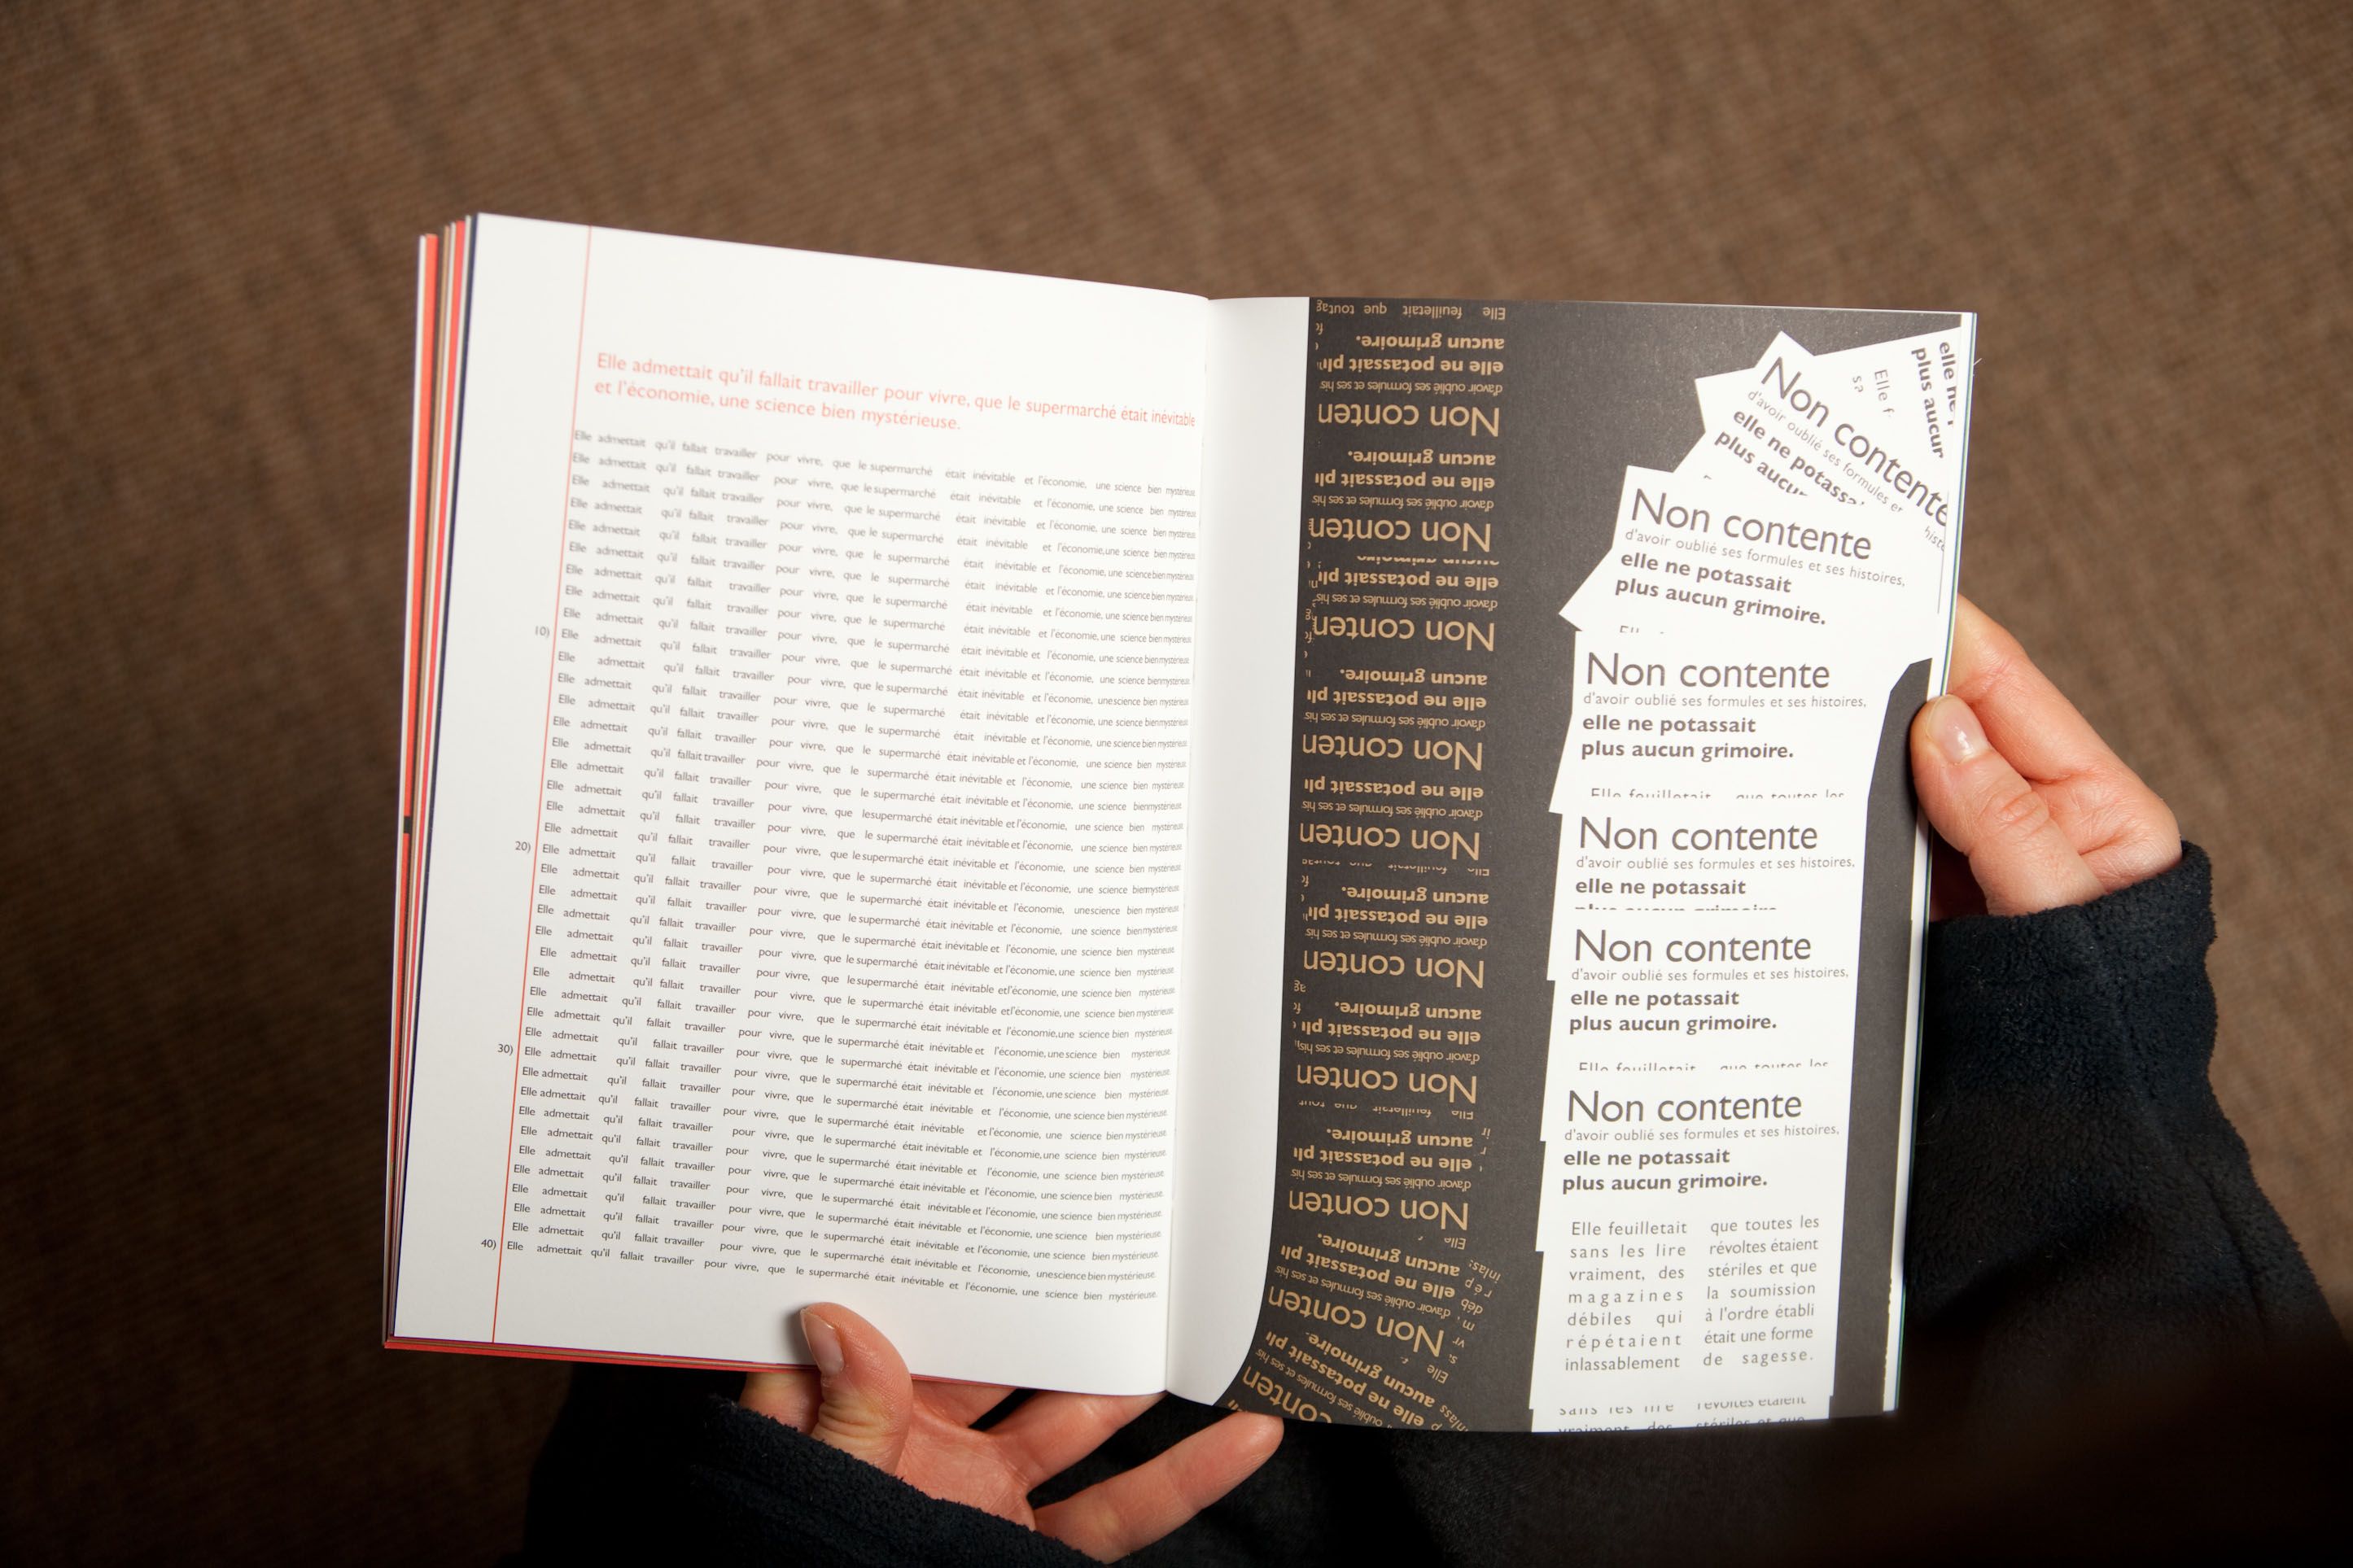 Elle admettait qu'il fallait travailler pour vivre, que le supermarché était inévitable
et l'économie, une science bien mystérieuse.
Elle admettait qu'il fallait travailler pour vivre, que le supermarché était inévitable et l'économie, une science bien mystérieuse.
Elle admettait qu'il fallait travailler pour vivre, que le supermarché était inévitable et l'économie, une science bien mystérieuse.
Elle admettait qu'il fallait travailler pour vivre, que le supermarché était inévitable et l'économie, une science bien mystérieuse.
Elle admettait qu'il fallait travailler pour vivre, que le supermarché était inévitable et l'économie, une science bien mystérieuse.
Elle admettait qu'il fallait travailler pour vivre, que le supermarché était inévitable et l'économie, une science bien mystérieuse.
Elle admettait qu'il fallait travailler pour vivre, que le supermarché était inévitable et l'économie, une science bien mystérieuse.
Elle admettait qu'il fallait travailler pour vivre, que le supermarché était inévitable et l'économie, une science bien mystérieuse.
Elle admettait qu'il fallait travailler pour vivre, que le supermarché était inévitable et l'économie, une science bien mystérieuse.
Elle admettait qu'il fallait travailler pour vivre, que le supermarché était inévitable et l'économie, une science bien mystérieuse.
10) Elle admettait qu'il fallait travailler pour vivre, que le supermarché était inévitable et l'économie, une science bien mystérieuse.
Elle admettait qu'il fallait travailler pour vivre, que le supermarché était inévitable et l'économie, une science bien mystérieuse.
Elle admettait qu'il fallait travailler pour vivre, que le supermarché était inévitable et l'économie, une science bien mystérieuse.
Elle admettait qu'il fallait travailler pour vivre, que le supermarché était inévitable et l'économie, une science bien mystérieuse.
Elle admettait qu'il fallait travailler pour vivre, que le supermarché était inévitable et l'économie, une science bien mystérieuse.
Elle admettait qu'il fallait travailler pour vivre, que le supermarché était inévitable et l'économie, une science bien mystérieuse.
Elle admettait qu'il fallait travailler pour vivre, que le supermarché était inévitable et l'économie, une science bien mystérieuse.
Elle admettait qu'il fallait travailler pour vivre, que le supermarché était inévitable et l'économie, une science bien mystérieuse.
Elle admettait qu'il fallait travailler pour vivre, que le supermarché était inévitable et l'économie, une science bien mystérieuse.
Elle admettait qu'il fallait travailler pour vivre, que le supermarché était inévitable et l'économie, une science bien mystérieuse.
20) Elle admettait qu'il fallait travailler pour vivre, que le supermarché était inévitable et l'économie, une science bien mystérieuse.
Elle admettait qu'il fallait travailler pour vivre, que le supermarché était inévitable et l'économie, une science bien mystérieuse.
Elle admettait qu'il fallait travailler pour vivre, que le supermarché était inévitable et l'économie, une science bien mystérieuse.
Elle admettait qu'il fallait travailler pour vivre, que le supermarché était inévitable et l'économie, une science bien mystérieuse.
Elle admettait qu'il fallait travailler pour vivre, que le supermarché était inévitable et l'économie, une science bien mystérieuse.
Elle admettait qu'il fallait travailler pour vivre, que le supermarché était inévitable et l'économie, une science bien mystérieuse.
Elle admettait qu'il fallait travailler pour vivre, que le supermarché était inévitable et l'économie, une science bien mystérieuse.
Elle admettait qu'il fallait travailler pour vivre, que le supermarché était inévitable et l'économie, une science bien mystérieuse.
Elle admettait qu'il fallait travailler pour vivre, que le supermarché était inévitable et l'économie, une science bien mystérieuse.
Elle admettait qu'il fallait travailler pour vivre, que le supermarché était inévitable et l'économie, une science bien mystérieuse.
30) Elle admettait qu'il fallait travailler pour vivre, que le supermarché était inévitable et l'économie, une science bien mystérieuse.
Elle admettait qu'il fallait travailler pour vivre, que le supermarché était inévitable et l'économie, une science bien mystérieuse.
Elle admettait qu'il fallait travailler pour vivre, que le supermarché était inévitable et l'économie, une science bien mystérieuse.
Elle admettait qu'il fallait travailler pour vivre, que le supermarché était inévitable et l'économie, une science bien mystérieuse.
Elle admettait qu'il fallait travailler pour vivre, que le supermarché était inévitable et l'économie, une science bien mystérieuse.
Elle admettait qu'il fallait travailler pour vivre, que le supermarché était inévitable et l'économie, une science bien mystérieuse.
Elle admettait qu'il fallait travailler pour vivre, que le supermarché était inévitable et l'économie, une science bien mystérieuse.
Elle admettait qu'il fallait travailler pour vivre, que le supermarché était inévitable et l'économie, une science bien mystérieuse.
Elle admettait qu'il fallait travailler pour vivre, que le supermarché était inévitable et l'économie, une science bien mystérieuse.
Elle admettait qu'il fallait travailler pour vivre, que le supermarché était inévitable et l'économie, une science bien mystérieuse.
40) Elle admettait qu'il fallait travailler pour vivre, que le supermarché était inévitable et l'économie, une science bien mystérieuse.
Elle feuilletait que
aucun grimoire.
elle ne potassait pl
d'avoir oublié ses formules et ses his
Non conten
aucun grimoire.
elle ne potassait pl
d'avoir oublié ses formules et ses his
Non conten
elle ne potassait pl
d'avoir oublié ses formules et ses his
Non conten
aucun grimoire.
elle ne potassait pl
d'avoir oublié ses formules et ses his
Non conten
elle ne potassait pl
d'avoir oublié ses formules et ses his
Non conten
aucun grimoire.
elle ne potassait pl
d'avoir oublié ses formules et ses his
Non conten
aucun grimoire.
elle ne potassait pl
d'avoir oublié ses formules et ses his
Non conten
Elle feuilletait que tout
aucun grimoire.
elle ne potassait pl
d'avoir oublié ses formules et ses his
Non conten
Elle
aucun grimoire.
elle ne potassait pl
d'avoir oublié ses formules et ses his
Non conten
Elle
aucun grimoire.
elle ne potassait pl
et ses his
conten
elle ne
plus aucun
Elle f
Non contente
d'avoir oublié ses formules et
histo
elle ne potassa
plus aucu
Non contente
d'avoir oublié ses formules et ses histoires,
elle ne potassait
plus aucun grimoire.
Non contente
d'avoir oublié ses formules et ses histoires,
elle ne potassait
plus aucun grimoire.
Elle feuilletait que toutes les
Non contente
d'avoir oublié ses formules et ses histoires,
elle ne potassait
plus aucun grimoire
Non contente
d'avoir oublié ses formules et ses histoires,
elle ne potassait
plus aucun grimoire.
Elle feuilletait que toutes les
Non contente
d'avoir oublié ses formules et ses histoires,
elle ne potassait
plus aucun grimoire.
Elle feuilletait
sans les lire
vraiment, des
magazines
débiles qui
répétaient
inlassablement
que toutes les
révoltes étaient
stériles et que
la soumission
à l'ordre établi
était une forme
de sagesse.
sans les lire révoltes étaient
vraiment, des stériles et que